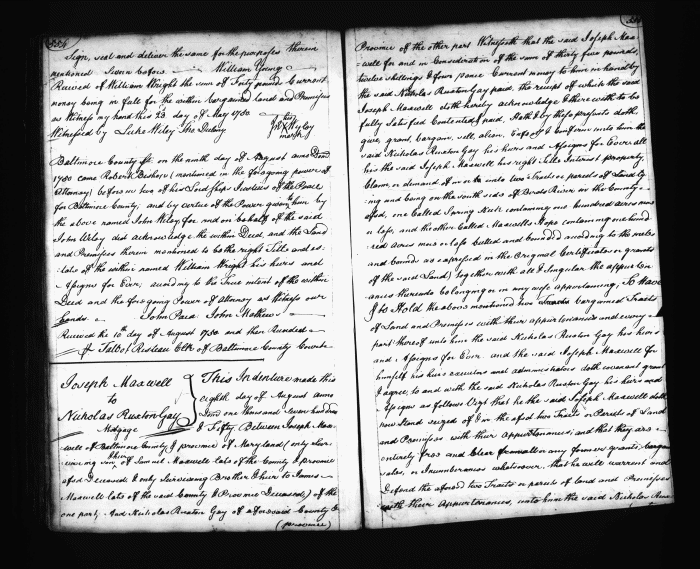 554
Sign, seal and deliver the same for the purposes therein
mentioned Seven before William Young
Received of William Wright the sum of Forty pound Currant
money being in full for the within bargained Land and Premises
as Witness my hand this 23 day of May 1750
his
Witnessed by Luke Wiley Thos Dulany John X Wyley
mark
Baltimore County ss on the ninth day of August anno Dom
1750 came Robert (mentioned in the foregoing power of
Attorney) before us two of his Lordships Justices of the Peace
for Baltimore County, and by virtue of the Power given to him by
the above named John Wiley for and on behalf of the said
John Wiley did acknowledge the within Deed, and the Land
and Premises therein mentioned to be the right Title and es-
tate of the within named William Wright his heirs and
Assigns for Ever, according to the true intent of the within
Deed and the foregoing Power of Attorney as Witness our
hands. John Paca John Mathews
Received the 10th day of August 1750 and then Recorded
Talbot Risteau Clk of Baltimore County Court
Joseph Maxwell
to
Nicholas Ruxton Gay
Mortgage
This Indenture made this
eighth day of August anno
Dom one thousand Seven hundred
& Fifty Between Joseph Max-
well of Baltimore County & province of Maryland (only
son of Samuel Maxwell late of the County & province
afsd Deceased & only Surviving Brother & heir to James
Maxwell late of the said County & Province Deceased) of the
one part, And Nicholas Ruxton Gay of aforesaid County &
(province)
Province of the other part Witnesseth that the said Joseph Max
-well for and in Consideration of the sum of thirty five pounds,
twelve shillings & four pence Currant money to him in hand by
the said Nicholas Ruxton Gay paid, the receipt of which the said
Joseph Maxwell doth hereby acknowledge & therewith to be
fully Satisfied Contented & paid, Hath & by these presents doth,
give, grant, bargain, sell, alien, Enfeoff & Confirm unto him the
said Nicholas Ruxton Gay his heirs and Assigns for Ever all
his the said Joseph Maxwell his right title Interest property,
Claim, or demand of in or to two Tracts or parcels of Land ly-
ing and being on the south side of Birds River in the County
afsd, one Called Spring Neck containing one hundred acres more
or less, and the other Called Maxwells Hope containing one hund
red acres more or less butted and bounded according to the meets
and bounds as expressed in the Original Certificates or grants
of the said Land) together with all & Singular the appurten
ances thereto belonging or in any wise appertaining, To Have
& to Hold the above mentioned two bargained Tracts
of Land and Premises with their appurtenances and every
part thereof unto him the said Nicholas Ruxton Gay his heirs
and Assigns for Ever and the said Joseph Maxwell for
himself his heirs executors and administrators doth covenant grant
& agree, to and with the said Nicholas Ruxton Gay his heirs and
Assigns as follows Vizt that he the said Joseph Maxwell doth
now Stand seized of & in the afsd two Tracts or Parcels of Land
and Premises with their appurtenances, and that they are
entirely free and Clear from all or any former grants, bargains
sales, or Incumbrances whatsoever, that he will warrant and
Defend the aforesd two Tracts or parcels of land and Premises
with their Appurtenances, unto him the said Nicholas Ruxton